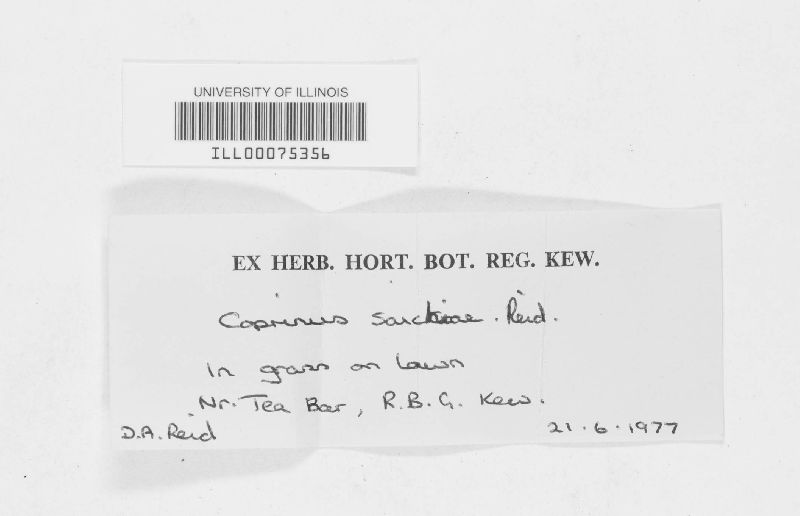 UNIVERSITY OF ILLINOIS
ILL00075356
EX HERB. HORT. BOT. REG. KEW.
Coprinus Reid.
In grass on lawn
Nr. Tea Bar, R.B.G. Kew.
D.A. Reid 21.6.1977